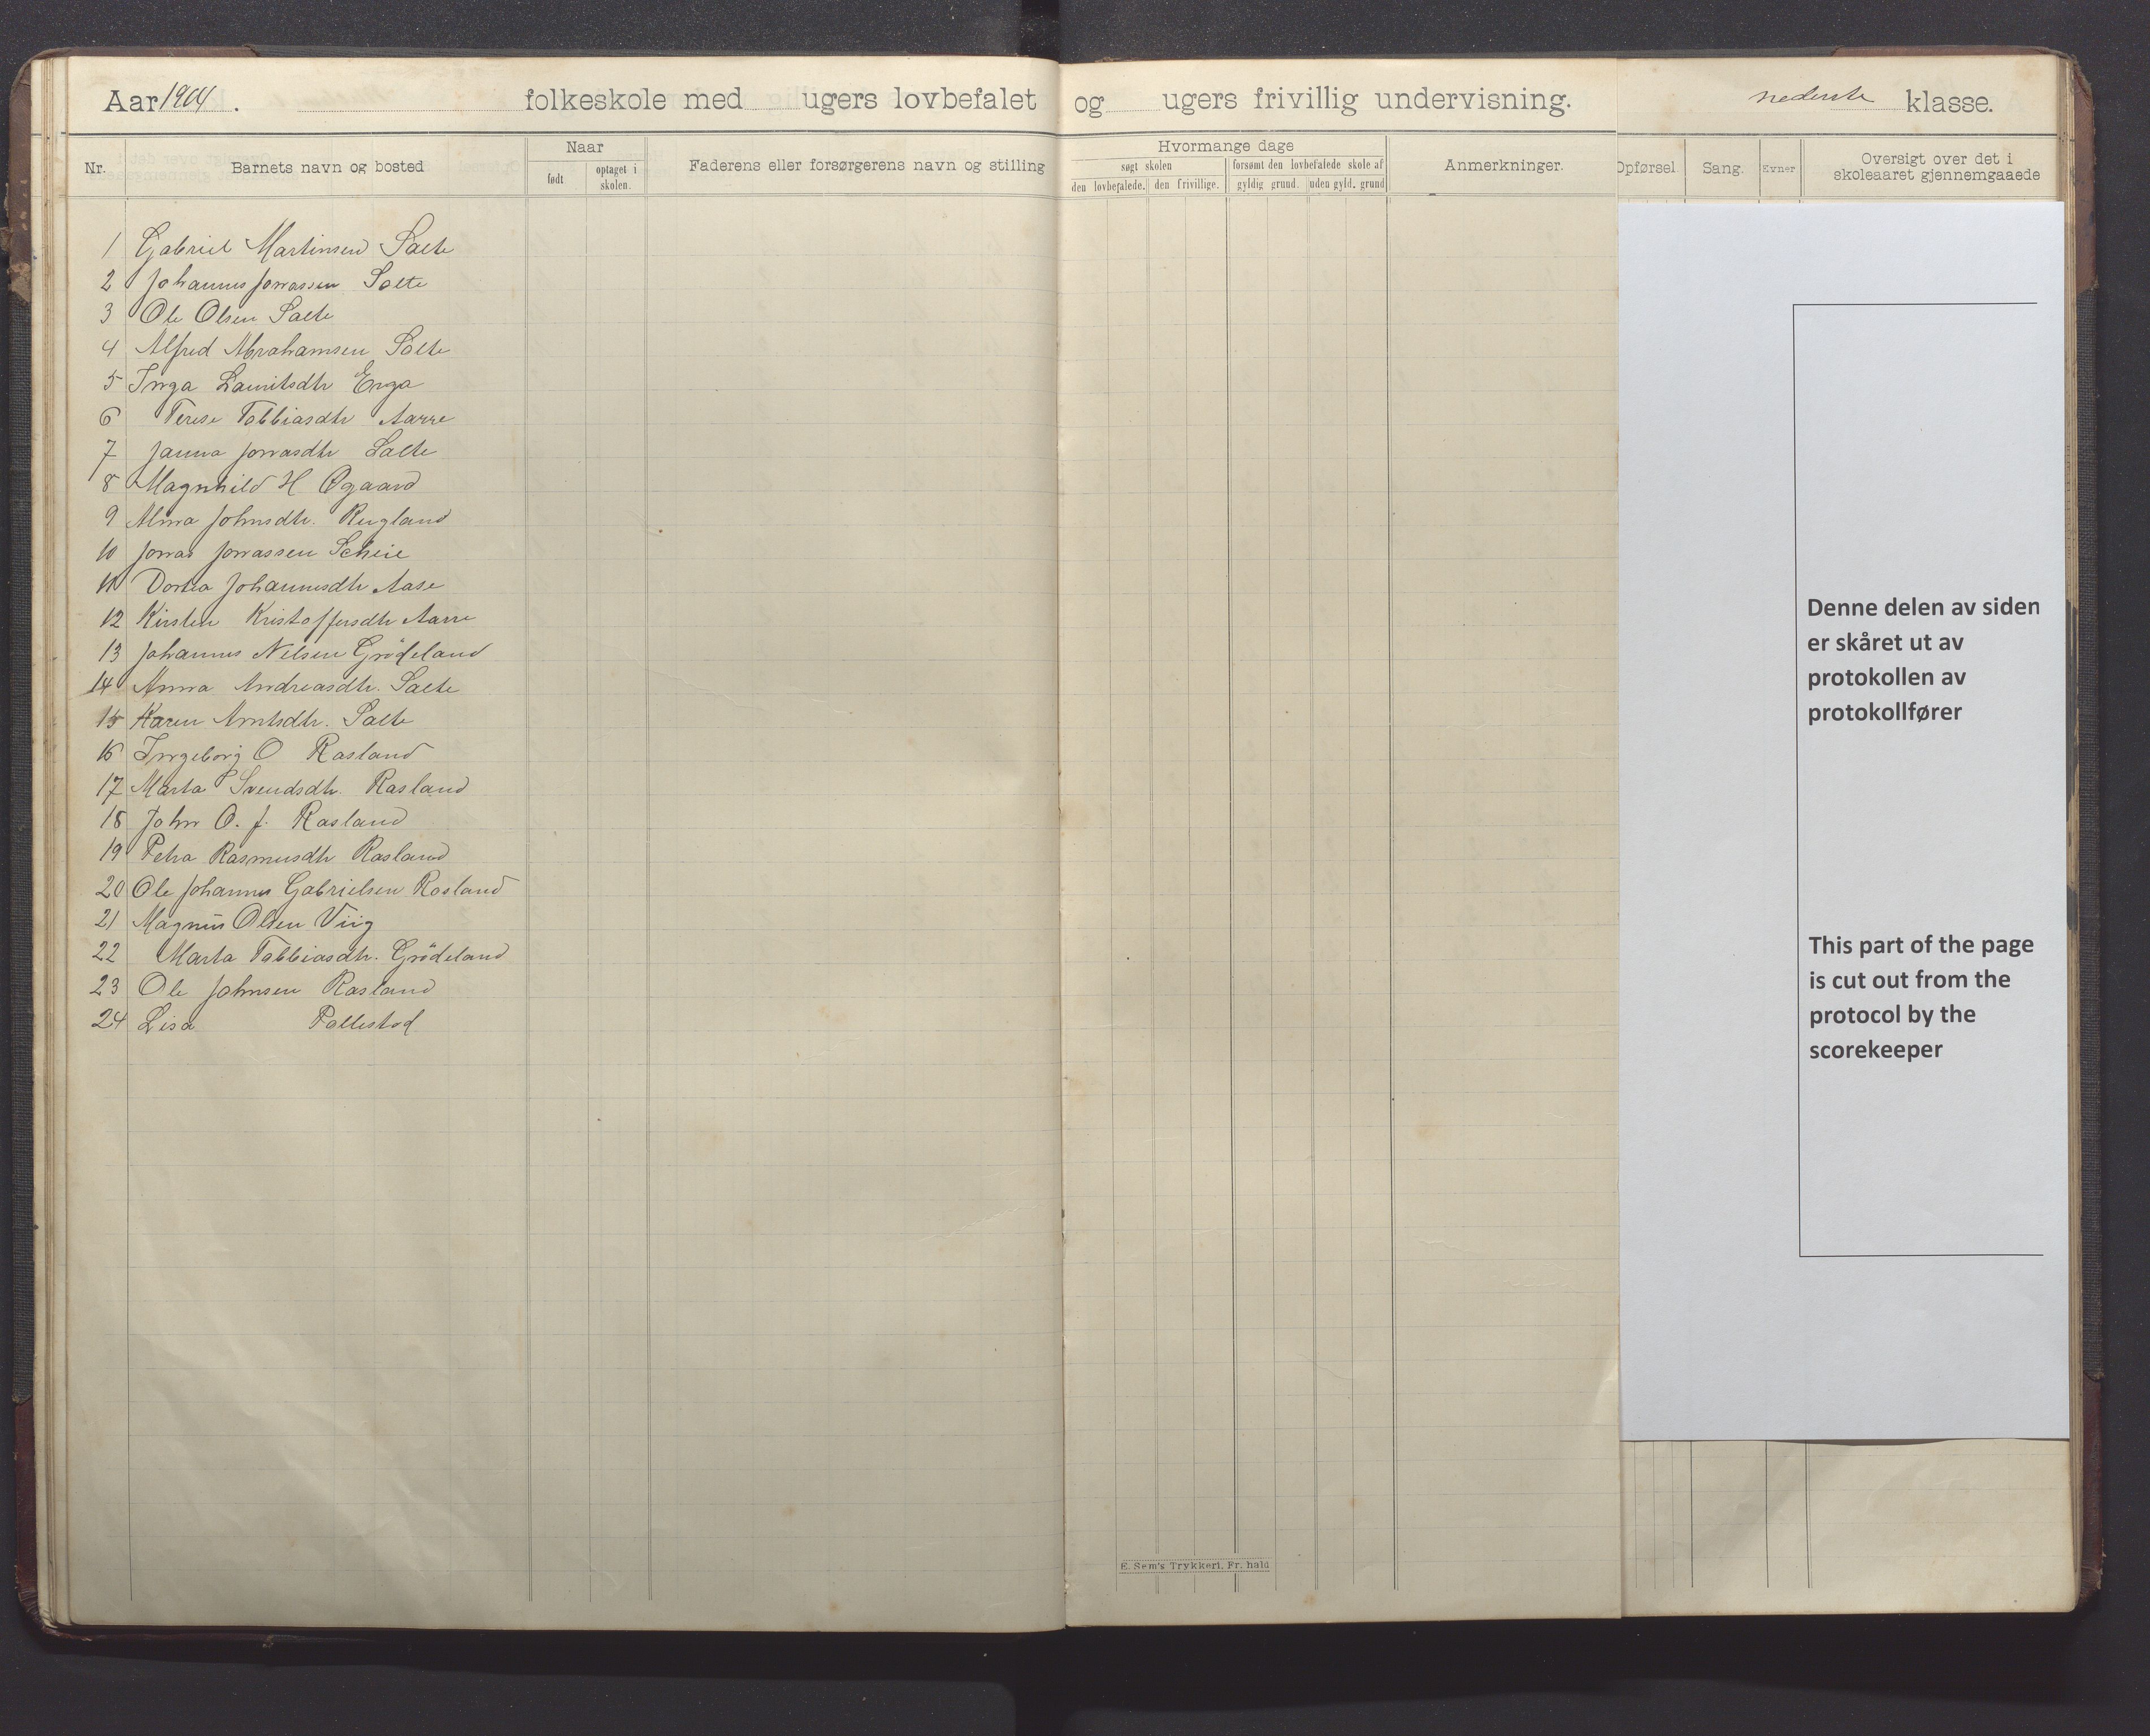 Aar 1904. folkeskole med ugers lovbefalet og ugers frivillig undervisning. nederste klasse.
Nr. Barnets navn og bosted Naar født optaget i skolen. Faderens eller forsørgerens navn og stilling Hvormange dage søgt skolen den lovbefalede. den frivillige. forsømt den lovbefalede skole af gyldig grund. uden gyld. grund Anmerkninger. Opførsel. Sang. Evner Oversigt over det i skoleaaret gjennemgaaede
1 Gabriel Martinsen Salte
2 Johannes Jonassen Salte
3 Ole Olsen Salte
4 Alfred Abrahamsen Salte
5 Inga Lauritsdtr Erga
6 Terese Tobbiasdtr Aarre
7 Janna Jonasdtr Salte
8 Magnhild H Øgaard
9 Alma Johnsdtr. Rugland
10 Jonas Jonassen Scheie
11 Dortea Johannesdtr Aase
12 Kirsten Kristoffersdtr Aarre
13 Johannes Nelsen Grödeland
14 Anna Andreasdtr. Salte
15 Karen Arntsdtr. Salte
16 Ingeborg O Rasland
17 Marta Svendsdtr. Rasland
18 John O. J. Rasland
19 Petra Rasmusdtr Rasland
20 Ole Johannes Gabrielsen Rosland
21 Magnus Olsen Viig
22 Marta Tobbiasdtr. Grödeland
23 Ole Johnsen Rasland
24 Lisa Pollestad
E. Sem's Trykkeri, Fr. hald
Denne delen av siden
er skåret ut av
protokollen av
protokollfører
This part of the page
is cut out from the
protocol by the
scorekeeper